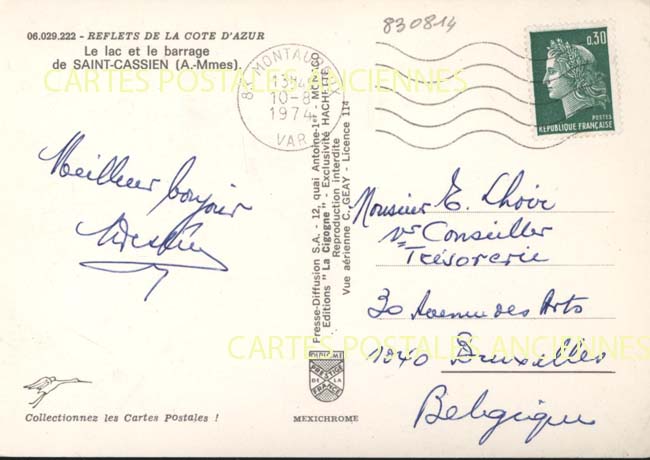 830814
06.029.222 - REFLETS DE LA COTE D'AZUR
Le lac et le barrage
de SAINT-CASSIEN (A.-Mmes).
CARTES POSTALES ANCIENNES
83 MONTAUROUX
13H45
10-8
1974
VAR
0,30
POSTES
RÉPUBLIQUE FRANÇAISE
Meilleur bonjour
Presse-Diffusion S.A. - 12, quai Antoine-1er - MONACO
Editions "La Cigogne" - Exclusivité HACHETTE
Reproduction interdite
Vue aérienne C. GEAY - Licence 114
Monsieur E. Lhoir
Conseiller
Trésorerie
30 Avenue des Arts
1040 Bruxelles
Belgique
CARTES POSTALES ANCIENNES
DIPLOME
PRESTIGE
DE LA
FRANCE
Collectionnez les Cartes Postales !
MEXICHROME